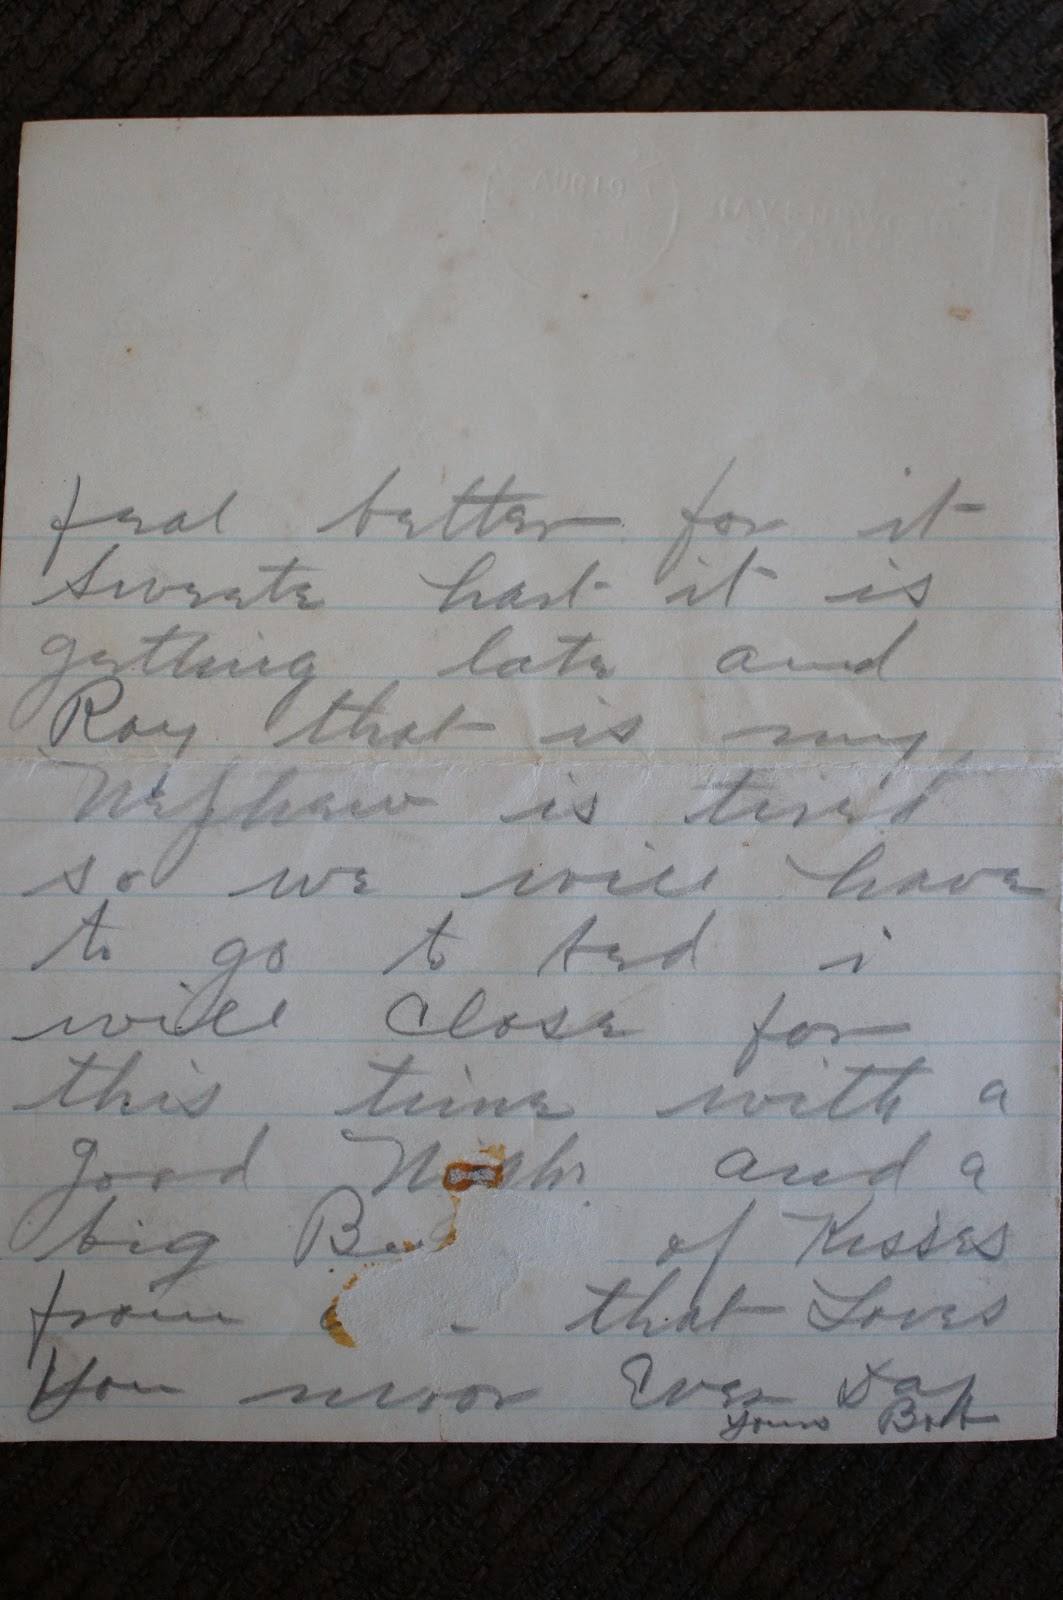 AUG 19
feal better for it
Sweete hart it is
getting late and
Ray that is my
Nephew is tired
so we will have
to go to bed i
will Close for
this time with a
good Night and a
big of Kisses
from that Loves
You moor Ever Day
Yours Bob